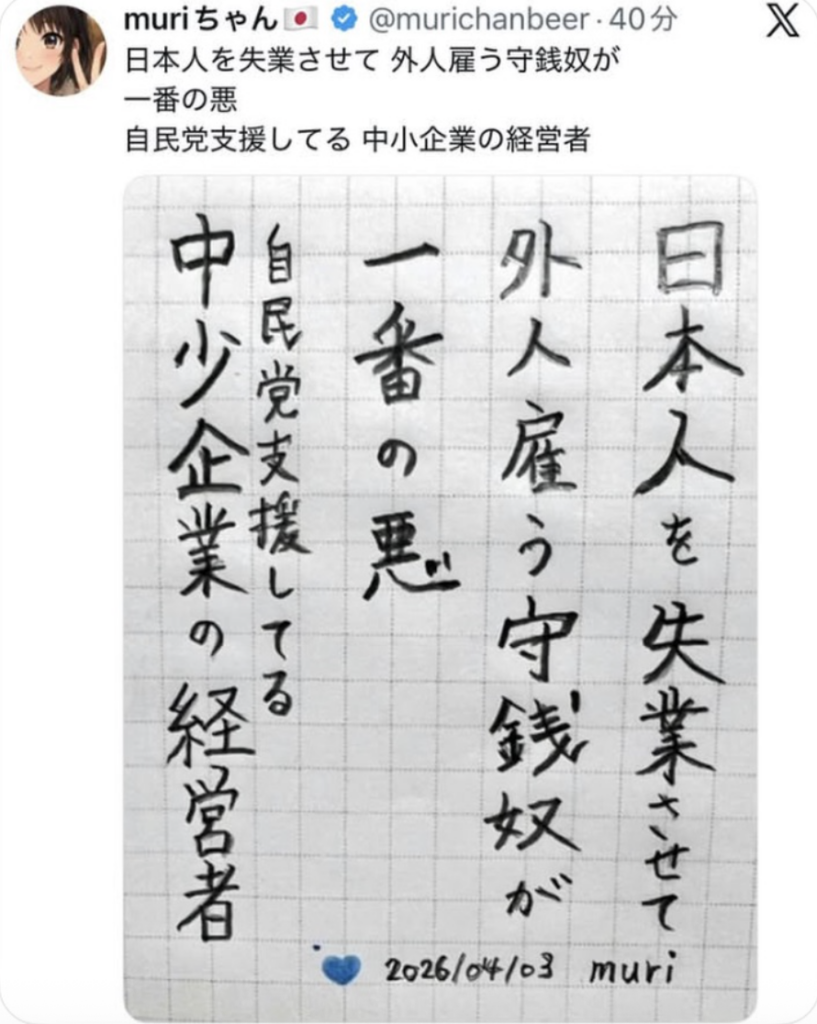 muriちゃん🇯🇵 @murichanbeer · 40分
日本人を失業させて 外人雇う守銭奴が
一番の悪
自民党支援してる 中小企業の経営者
日本人を失業させて
外人雇う守銭奴が
一番の悪
自民党支援してる
中少企業の経営者
2026/04/03 muri